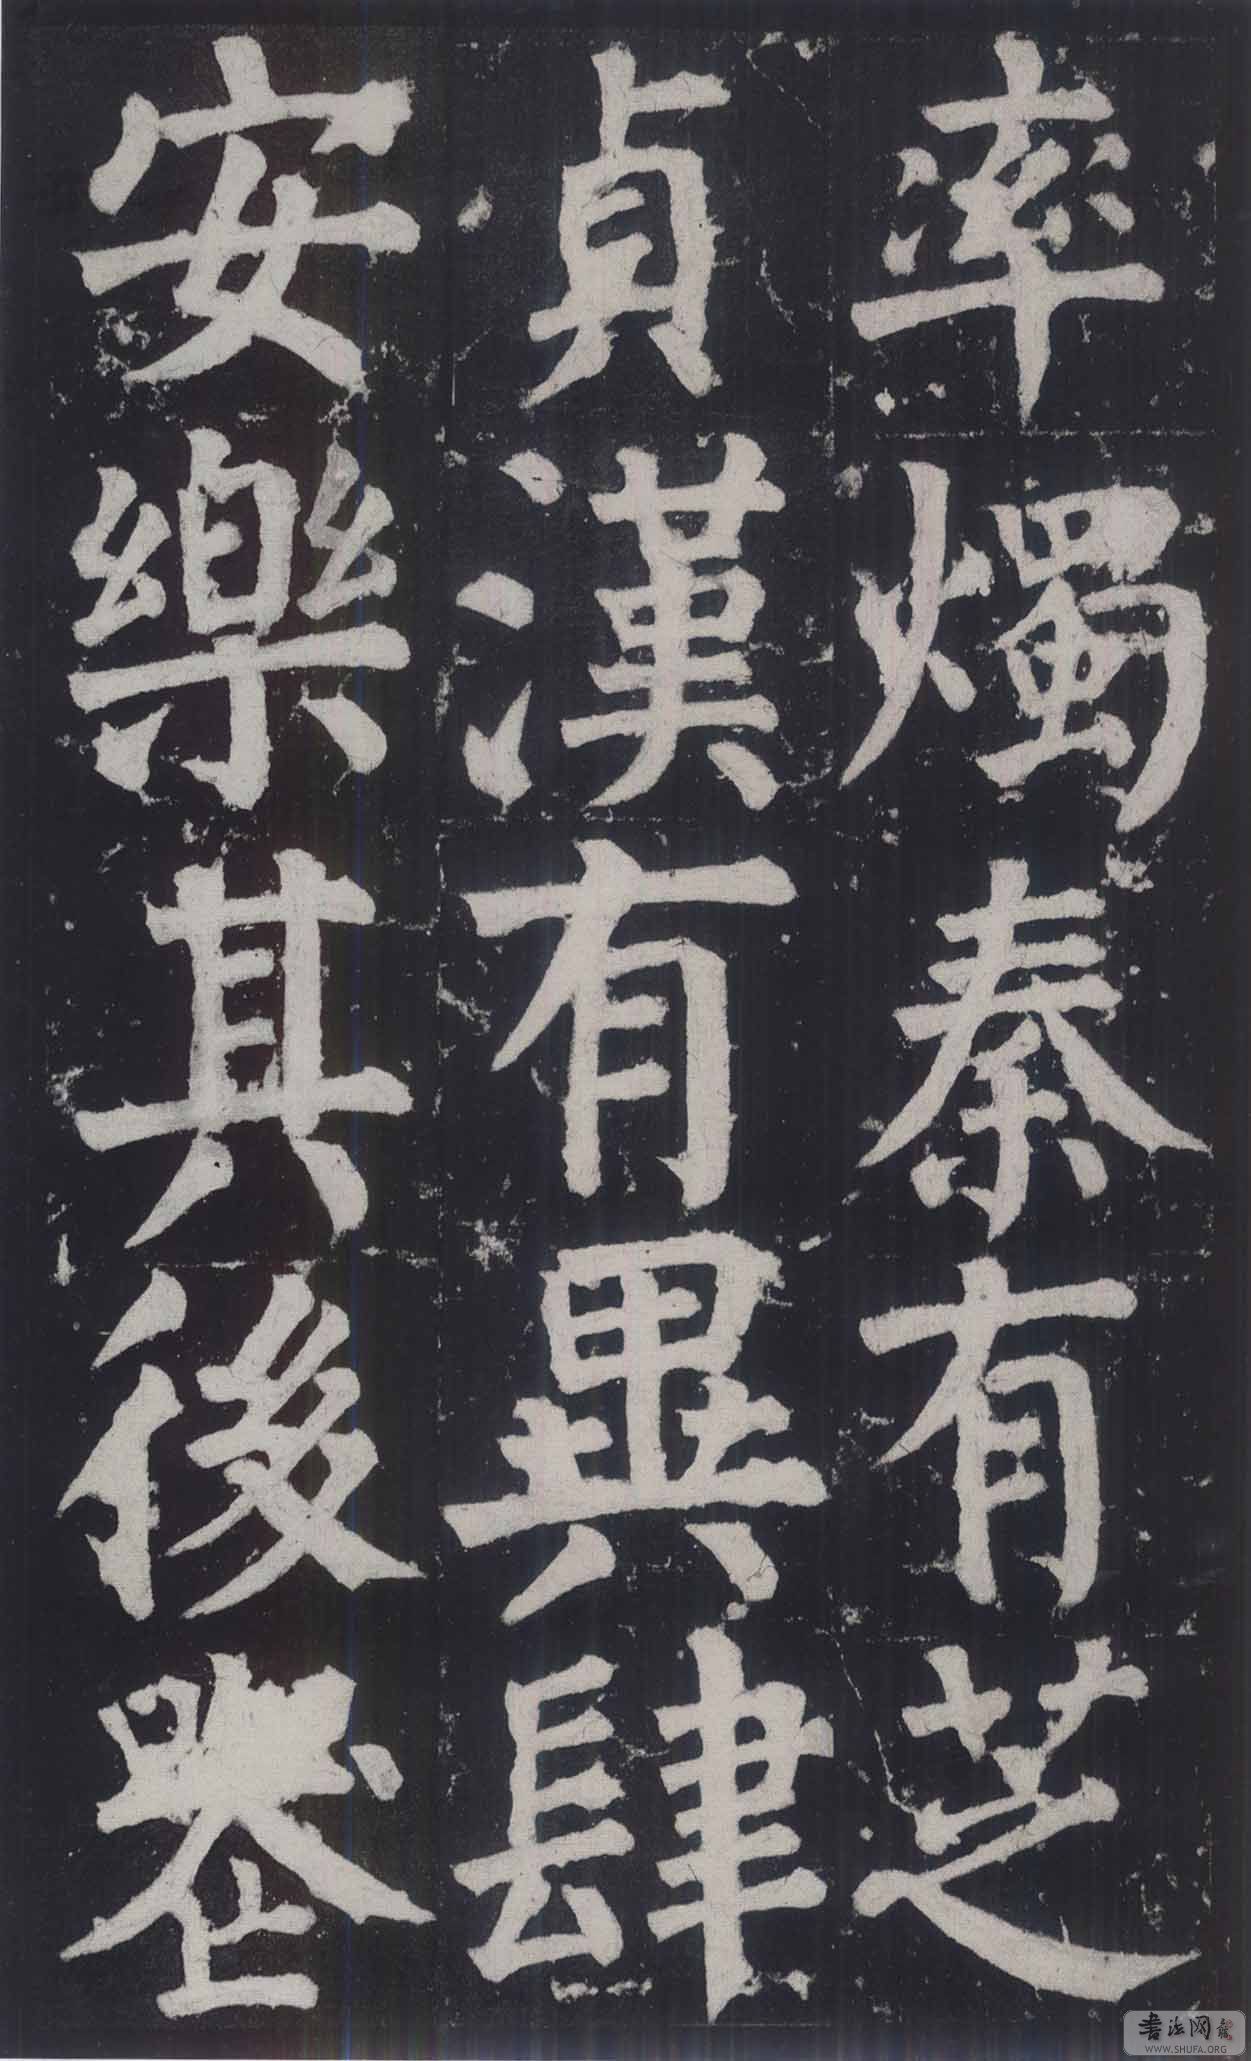 率燭秦有芝
貞漢有畢肆
安樂其後
書法网
WWW.SHUFA.ORG